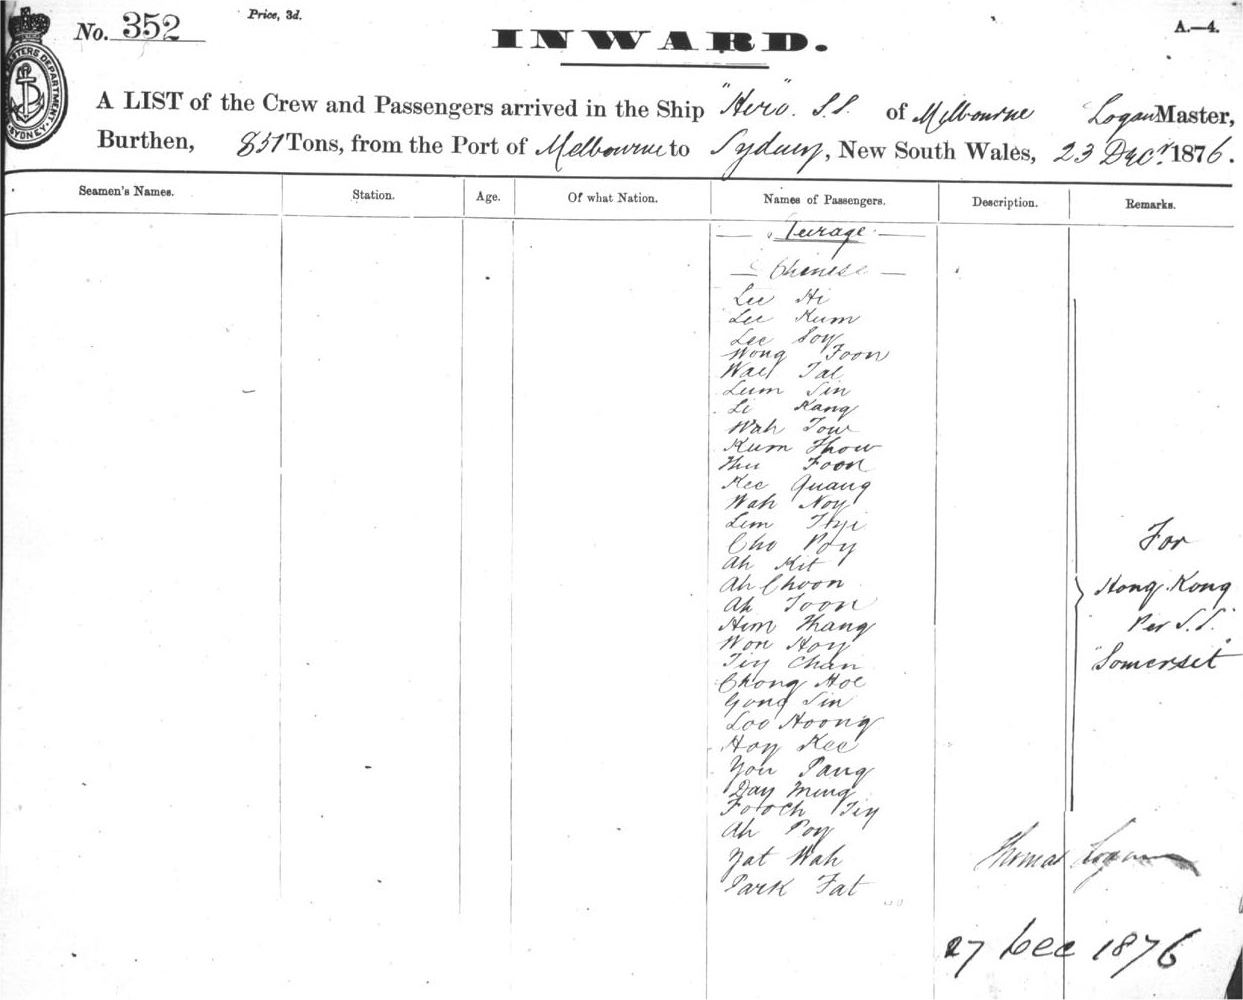 No. 352
Price, 3d.
A.—4.
INWARD.
A LIST of the Crew and Passengers arrived in the Ship "Hero" S.S. of Melbourne Logan Master,
Burthen, 851 Tons, from the Port of Melbourne to Sydney, New South Wales, 23 Decr. 1876.
Seamen's Names. Station. Age. Of what Nation. Names of Passengers. Description. Remarks.
Steerage
Chinese
Lee Hi
Lee Kum
Lee Soy
Wong Foon
Tal
Lum Sin
Li Kang
Wah Tow
Kum Thow
Foon
Kee Quang
Wah Noy
Lem
Cho Poy
For
Ah Kit
Ah Choon
Hong Kong
Ah Toon
Hem Thang
Per S.S.
Won Hoy
Tiy Chan
"Somerset"
Chong Hoe
Gong Sin
Loo Hoong
Hoy Kee
You Pang
Day Ming
Tiy
Ah Poy
Yat Wah
Thomas Logan
Park Fat
27 Dec 1876